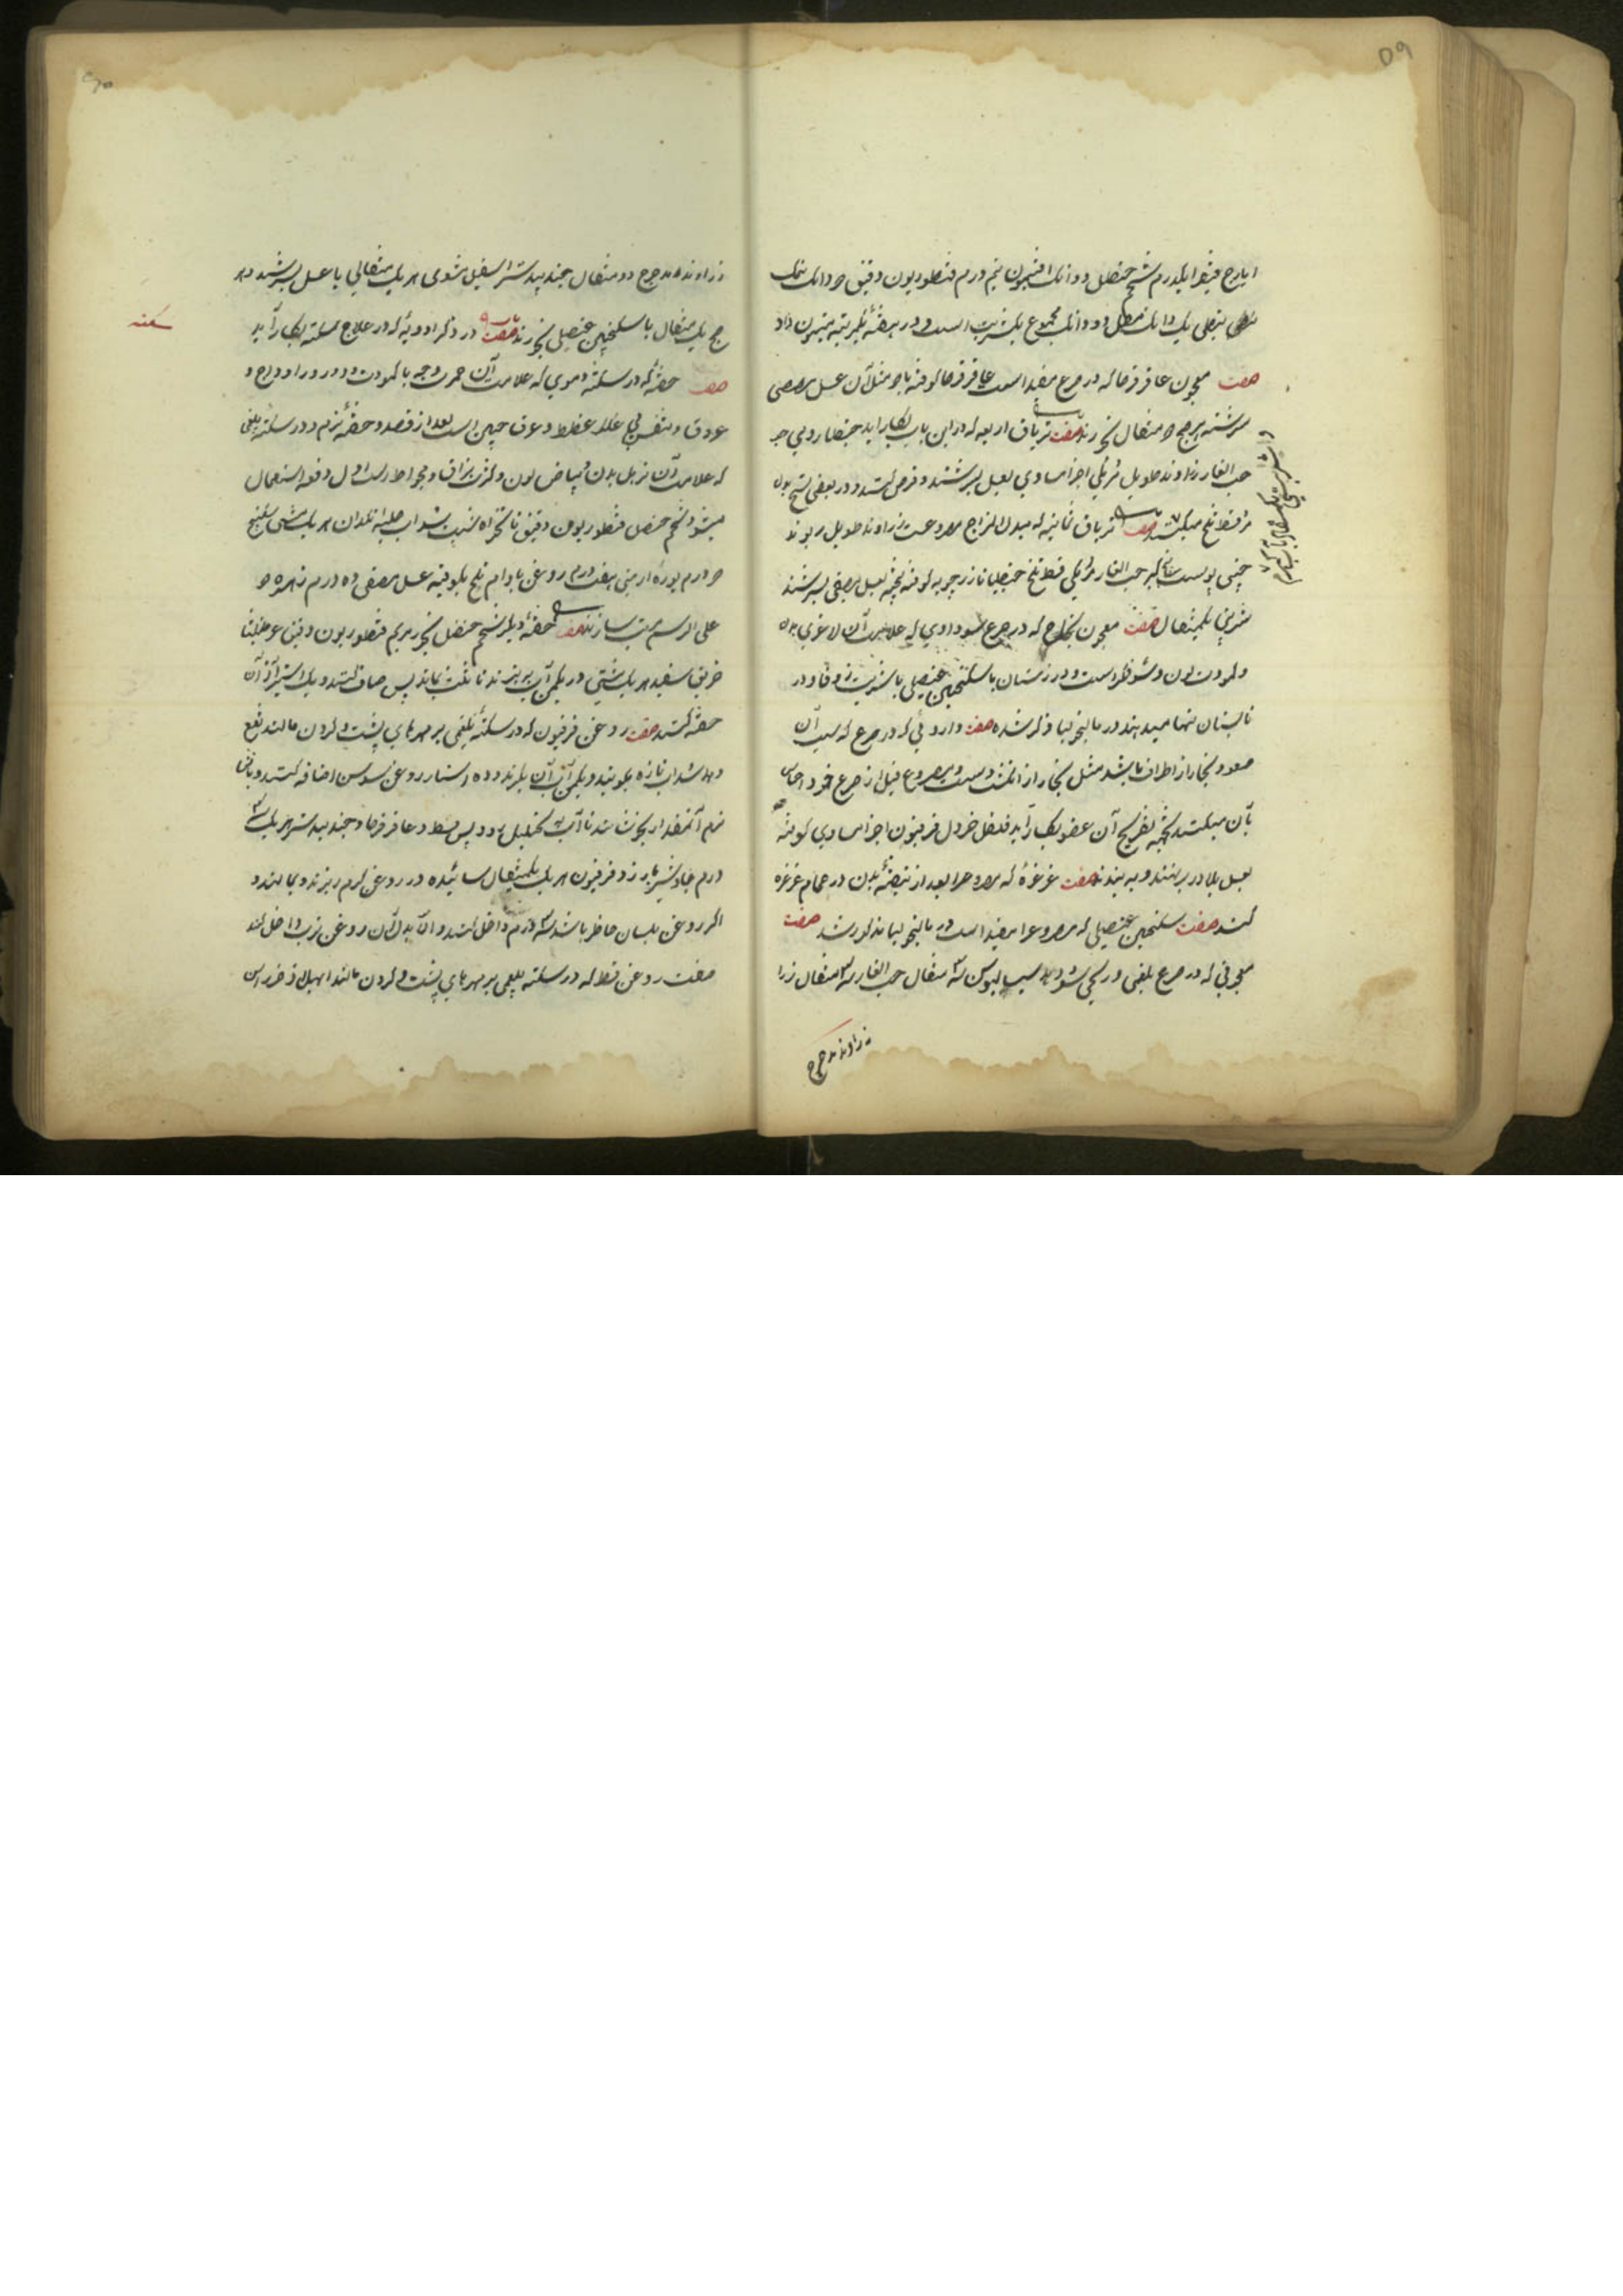 ایارج فیقرا یکدرم شحم حنظل دو دانک افتیمون نیم درم قنطوریون دقیق دانک نمک
نفطی یک دانک مقل دو دانک مجموع یک شربت است و در هفته یکمرتبه میتوان داد
صفت معجون عاقرقرحا که در صرع مفید است عاقرقرحا کوفته با مثل آن عسل مصفی
سرشته مثقال بخورند صفت تریاق اربعه که در این باب بکار آید جنطیا رومی
حب الغار زراوند طویل مر مکی اجزا مساوی بعسل بسرشند و قرص کنند و در بعضی نسخ بدل
مر قسط تلخ میکنند صفت تریاق ثمانیه که مبدل المزاج مصروعست زراوند طویل ریوند
چینی پوست بیخ کبر حب الغار مر مکی قسط تلخ جنطیانا زرچوبه کوفته بیخته بعسل مصفی بسرشند
شربتی یکمثقال صفت معجون نجاح که در صرع سوداوی که علامت آن لاغری بدن
و کمودت لون و سوء فکر است و در زمستان با سکنجبین عنصلی با شربت زوفا و در
تابستان تنها میدهند در مالیخولیا ذکر شده صفت داروئی که در صرع که سبب آن
صعود بخار از اطراف باشد مثل بخار از انگشت دست و مصروع قبل از صرع خود احساس
بآن میکند بجهة تفریح آن عضو بکار آید فلفل خردل فرفیون اجزا مساوی کوفته
بعسل بلادر برنهند و به بندند صفت غرغرهٔ که مصروع را بعد از تنقیهٔ بدن در حمام غرغره
کنند صفت سکنجبین عنصلی که مصروع را مفید است در مالیخولیا مذکور شد صفت
معجونی که در صرع بلغمی و ریحی سود دهد سیسالیوس سه مثقال حب الغار سه مثقال زرا
زراوند مدحرج
زراوند مدحرج دو مثقال جند بیدستر اسقیل مشوی هر یک مثقالی با عسل بسرشند و هر
یک مثقال با سکنجبین عنصلی بخورند باب صفت در ذکر ادویهٔ که در علاج سکته بکار آید
سکته
صفت حقنهٔ که در سکتهٔ دموی که علامت آن حمرت وجه با کمودت و درور اوداج و
عروق و تنفس بی غلظ غطیط و عرق جبین است بعد از فصد و حقنهٔ نرم و در سکتهٔ بلغمی
که علامت آن ترهل بدن و بیاض لون و لزج بزاق و مخاط است اول دفعه استعمال
میشود شحم حنظل قنطوریون دقیق نانخواه شبت سداب حلبه انگدان هر یک مشتی سکبینج
درم بوره ارمنی هفت درم روغن بادام تلخ یکوقیه عسل مصفی ده درم زهره
علی الرسم مرتب سازند صفت حقنهٔ دیگر شحم حنظل بخور مریم قنطوریون دقیق عرطنیثا
خربق سفید هر یک مشتی در یکمن آب بپزند تا ثلث بماند پس صاف کنند و یک استار از آن
حقنه کنند صفت روغن فرفیون که در سکتهٔ بلغمی بر مهرهای پشت و گردن مالند نفع
دهد سداب تازه بکوبند و یکمن آب آن بگیرند و ده استار روغن سوسن اضافه کنند و بآتش
نرم آنقدر بجوشانند تا آب به تحلیل رود پس قسط و عاقرقرحا و جند بیدستر هر یک سه
درم جاوشیر بارزد و فرفیون هر یک یکمثقال سائیده در روغن گرم ریزند و بمالند و
اگر روغن بلسان حاضر باشد سه درم داخل کنند و الا بدل آن روغن ترب داخل کنند
صفت روغن قسط که در سکته بلغمی بر مهرهای پشت و گردن مالند ابهل اذخر راسن